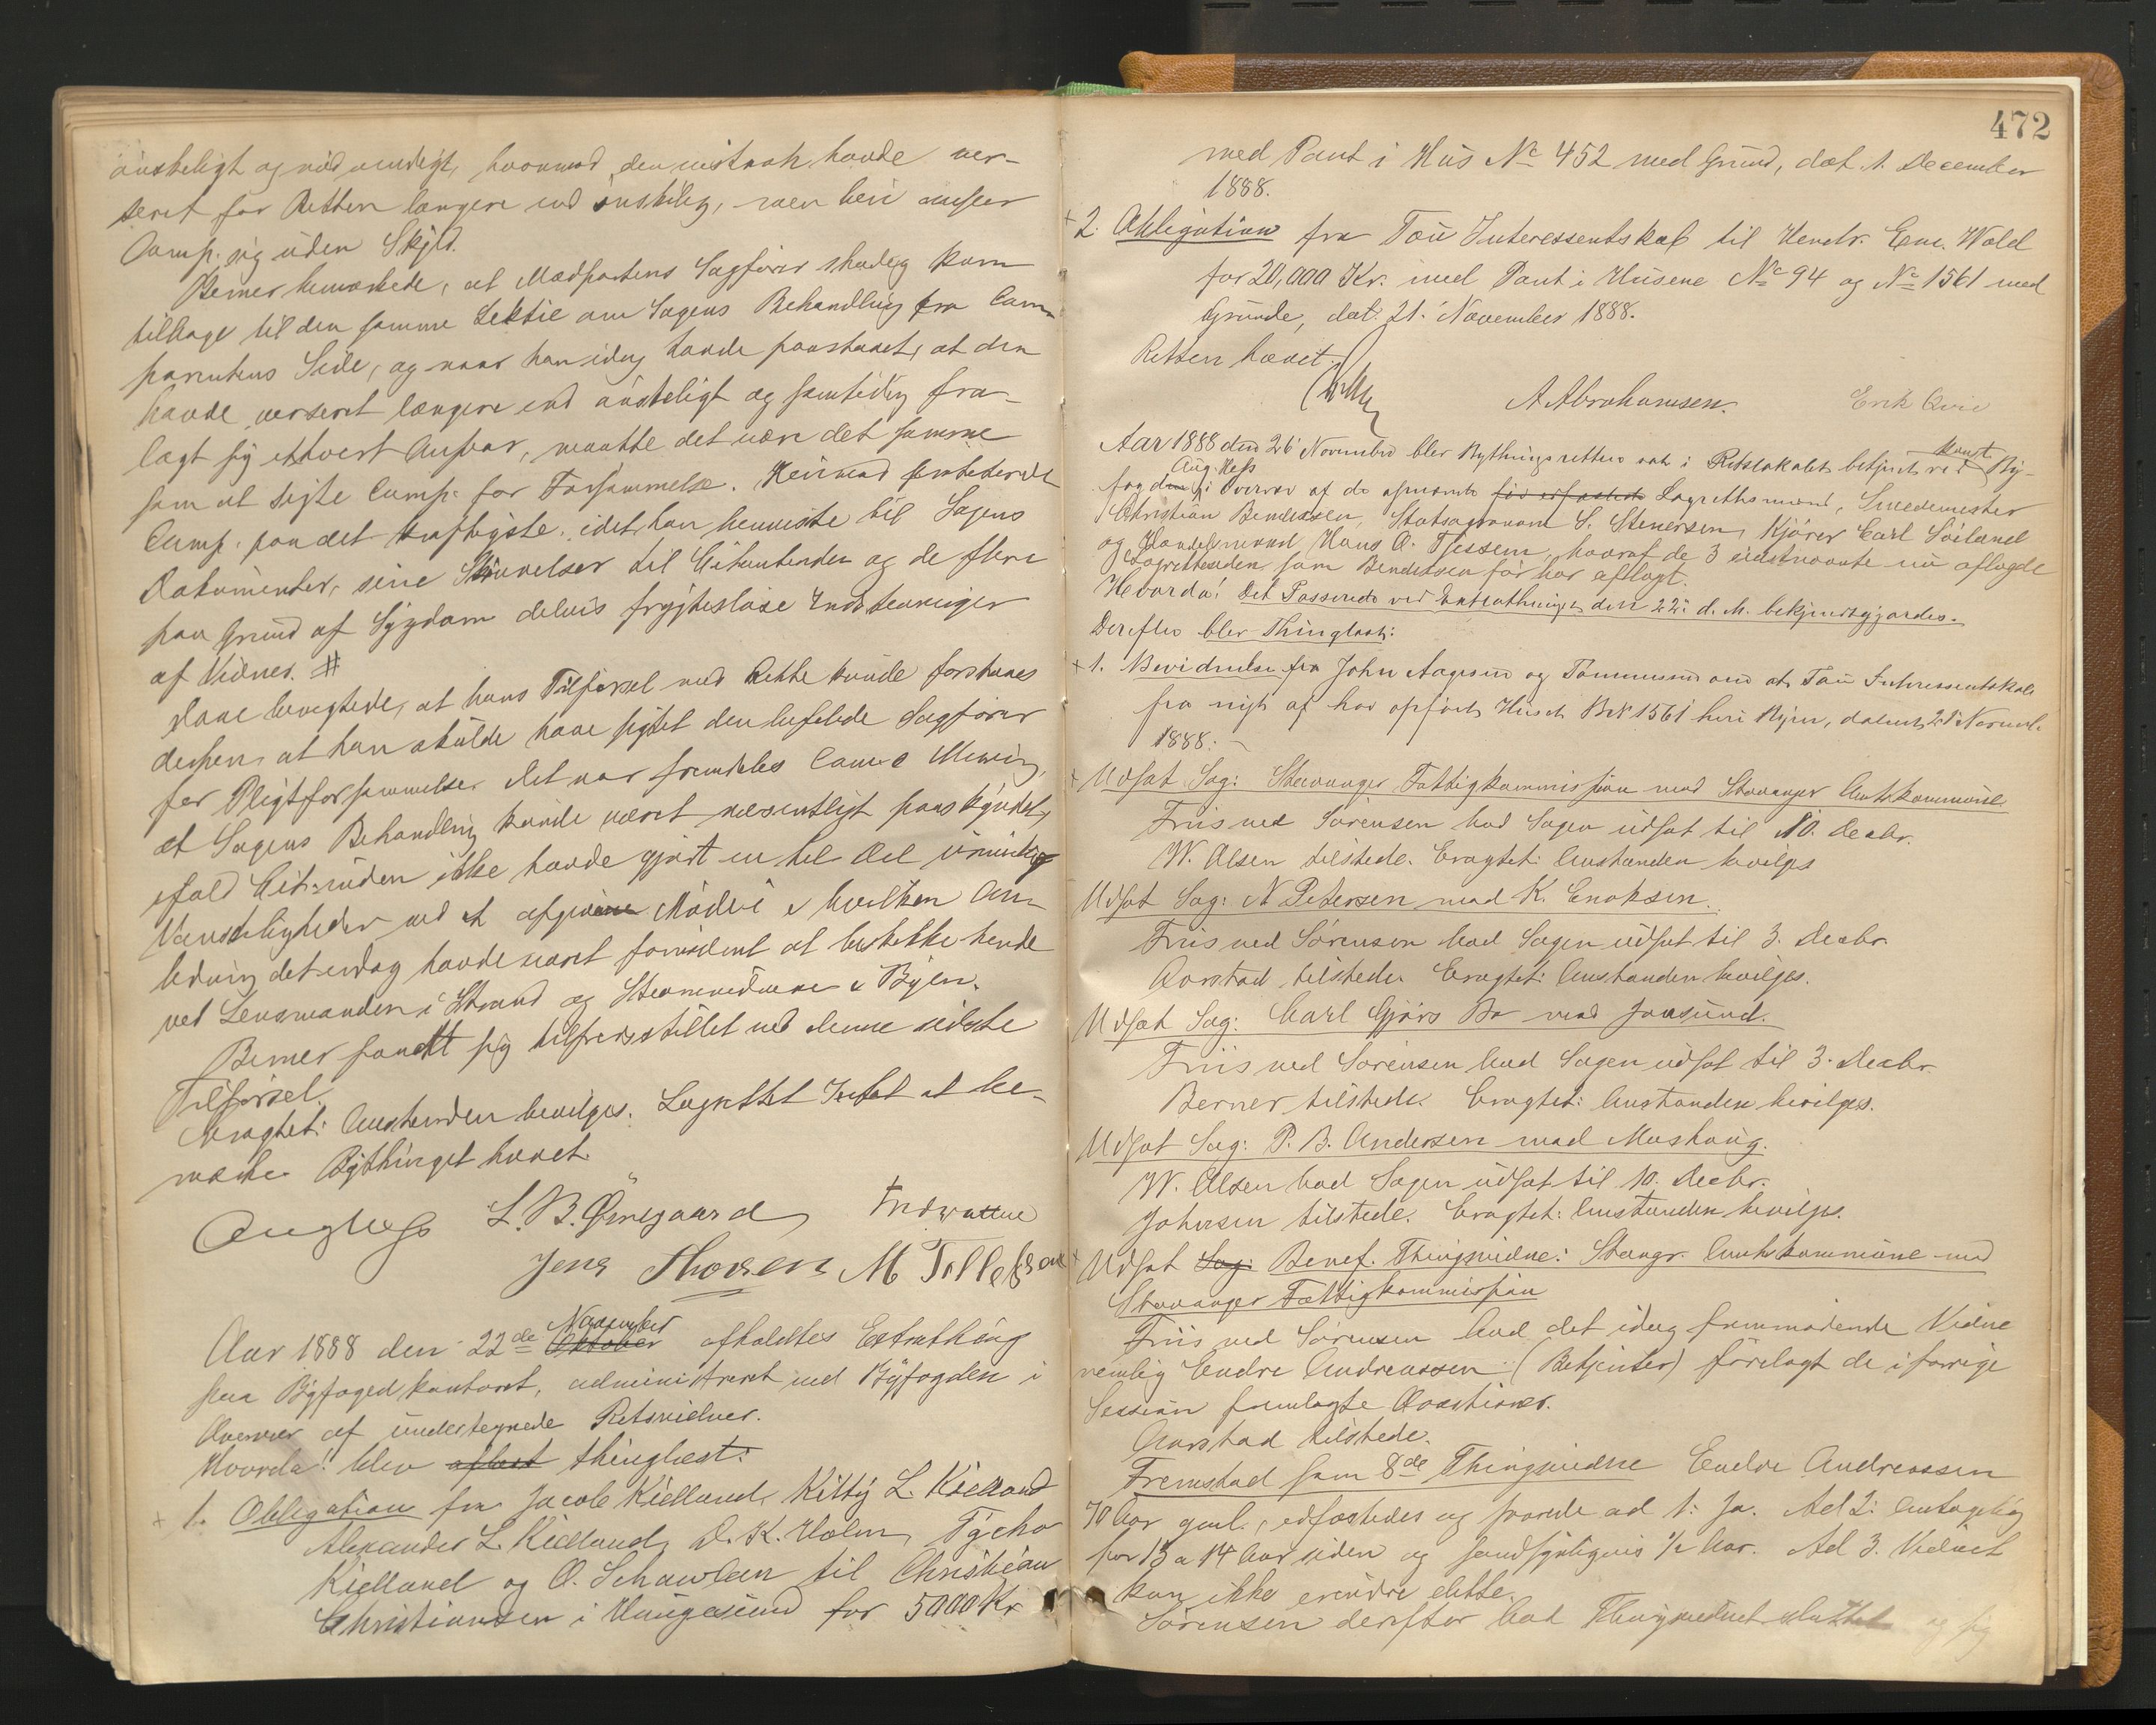 önskeligt og nödvendigt, hvorimod den vistnok havde ver-
seret for Retten længere end önskelig, men heri anser
Comp. sig uden Skyld.
Berner bemærkede, at Modpartens Sagförer stadig kom
tilbage til den samme Lektie om Sagens Behandling fra Com-
parentens Side, og naar han idag havde paastaaet, at den
havde verseret længere end önskeligt og samtidig fra-
lagt sig ethvert Ansvar, maatte det være det samme
som at sigte Comp. for Forsömmelse. Herimod protesterede
Comp. paa det kraftigste, idet han henviste til Sagens
Dokumenter, sine Skrivelser til Citantinden og de flere
paa Grund af Sygdom delvis frugtesløse Indstevninger
af Vidner. #
benegtede, at hans Tilförsel med Rette kunde forstaaes
derhen, at han skulde have sigtet den befalede Sagförer
for Pligtforsömmelse. Det var fremdeles Comp's Mening,
at Sagens Behandling kunde været væsentligt paaskyndet,
ifald Cit:inden ikke havde gjort en hel Del unödige
Vanskeligheder ved at afgive Möde i hvilken An-
ledning det endog havde været fornödent at beskikke hende
ved Lensmanden i Strand og Stevnevidnene i Byen.
Berner fandt sig tilfredsstillet ved denne sidste
Tilförsel.
Eragtet: Anstanden bevilges. Lagrettet Intet at be-
mærke. Bythinget hævet.
Aug Hess L. B. Qvnegaard
Jens Thorsen M Tollefsen
Aar 1888 den 22de Oktober November afholdtes Extrathing
paa Byfogedkontoret, administreret ved Byfogden i
Overvær af undertegnede Retsvidner.
Hvorda! blev aflæst thinglæst:
+ 1. Obligation fra Jacob Kielland, Kitty L. Kielland
Alexander L. Kielland, D. K. Holm, Tycho
Kielland og O. Schawlan til Christian
Christiansen i Haugesund for 5000 Kr
472
med Pant i Hus No 452 med Grund, dat. 1. December
1888.
+ 2. Obligation fra Tou Interessentskab til Hendr. Enc. Wold
for 20,000 Kr. med Pant i Husene No 94 og No 1561 med
Grunde, dat. 21' November 1888.
Retten hævet.
A Abrahamsen. Erik Qvie
Aar 1888 den 26' November blev Bythingsretten sat i Retslokalet betjent ved Konst. By-
fogden Aug. Hess i Overvær af de opnævnte före edfæstede Lagrettesmænd, Smedemester
Christian Bendiksen, Statsagronom S. Stenersen, Kjörer Carl Söiland
og Handelsmand Hans O. Tjessem, hvoraf de 3 sidstnævnte nu aflagde
Lagretteseden som Bendiksen för har aflagt.
Hvorda! Det Passerede ved Extrathinget den 22: d. M. bekjendtgjordes.
Derefter blev Thinglæst:
+ 1. Bevidnelse fra John Aagesen og Tönnessen om at Tou Interessentskab
fra nyt af har opført Huset No 1561 her i Byen, dateret 21' Novemb.
1888.
+ Udsat Sag: Stavanger Fattigkommission mod Stavanger Amtskommune
Friis ved Sörensen bad Sagen udsat til 10. Decbr.
W. Olsen tilstede. Eragtet: Anstanden bevilges
Udsat Sag: N Petersen mod K. Enoksen.
Friis ved Sörensen bad Sagen udsat til 3. Decbr.
Aarstad tilstede. Eragtet: Anstanden bevilges.
Udsat Sag: Carl Gjörs Bo mod Jaasund.
Friis ved Sörensen bad Sagen udsat til 3. Decbr.
Berner tilstede. Eragtet: Anstanden bevilges.
Udsat Sag: P. B. Andersen mod Moshaug.
W. Olsen bad Sagen udsat til 10. Decbr.
Johnsen tilstede. Eragtet: Anstanden bevilges.
+ Udsat Sag: Benef. Thingsvidne: Stavgr. Amtskommune mod
Stavanger Fattigkommission
Friis ved Sörensen bad det idag fremmödende Vidne
nemlig Endre Andreassen (Betjenter) forelagt de i forrige
Session fremlagte Qvæstioner.
Aarstad tilstede.
Fremstod som 8de Thingsvidne Endre Andreassen
70 Aar gml., edfæstedes og svarede ad 1: Ja. Ad 2: Antagelig
for 13 a 14 Aar siden og sandsynligvis ½ Aar. Ad 3. Vidnet
kan ikke erindre dette.
Sörensen derefter bad Thingsvidnet sluttet og sig